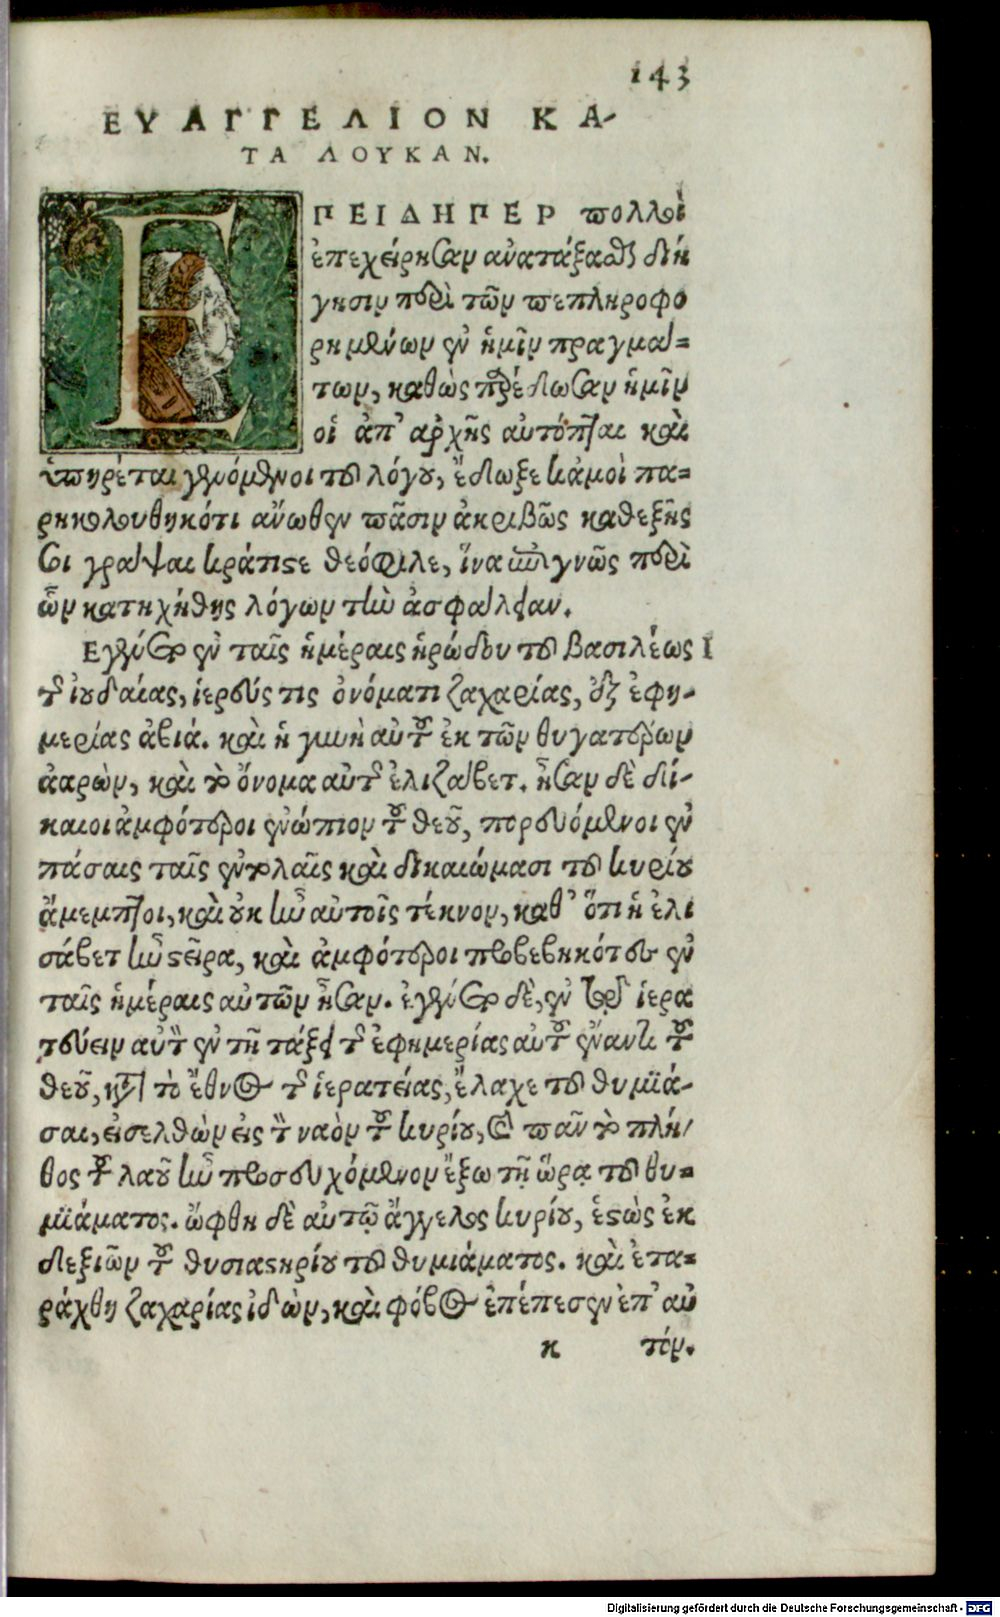 143
ΕΥΑΓΓΕΛΙΟΝ ΚΑ-
ΤΑ ΛΟΥΚΑΝ.
ΕΠΕΙΔΗΠΕΡ πολλοὶ
ἐπεχείρησαν ἀνατάξασθαι διή
γησιν περὶ τῶν πεπληροφο
ρημένων ἐν ἡμῖν πραγμά=
των, καθὼς παρέδωσαν ἡμῖν
οἱ ἀπ' αρχῆς αὐτόπται καὶ
ὑπηρέται γενόμενοι τοῦ λόγου, ἔδωξε κἀμοὶ πα=
ρηκολουθηκότι ἄνωθεν πᾶσιν ἀκριβῶς καθεξῆς
σοι γράψαι κράτιστε θεόφιλε, ἵνα ἐπιγνῶς περὶ
ὧν κατηχήθης λόγων τὴν ἀσφάλειαν.
Εγένετο ἐν ταῖς ἡμέραις ἡρώδου τοῦ βασιλέως I
τῆς ἰουδαίας, ἱερεύς τις ὀνόματι ζαχαρίας, ἐξ ἐφη-
μερίας ἀβιά. καὶ ἡ γυνὴ αὐτοῦ ἐκ τῶν θυγατέρων
ἀαρὼν, καὶ τὸ ὄνομα αὐτῆς ἐλιζάβετ. ἦσαν δὲ δί-
καιοι ἀμφότεροι ἐνώπιον τοῦ θεοῦ, πορευόμενοι ἐν
πάσαις ταῖς ἐντολαῖς καὶ δικαιώμασι τοῦ κυρίου
ἄμεμπτοι, καὶ οὐκ ἦν αὐτοῖς τέκνον, καθ' ὅτι ἡ ἐλι
σάβετ ἦν στεῖρα, καὶ ἀμφότεροι προβεβηκότες ἐν
ταῖς ἡμέραις αὐτῶν ἦσαν. ἐγένετο δὲ, ἐν τῷ ἱερα
τεύειν αὐτὸν ἐν τῇ τάξει τῆς ἐφημερίας αὐτοῦ ἔναντι τοῦ
θεοῦ, κατὰ τὸ ἔθνος τῆς ἱερατείας, ἔλαχε τοῦ θυμϊά-
σαι, εἰσελθὼν εἰς τὸν ναὸν τοῦ κυρίου, καὶ πᾶν τὸ πλῆ/
θος τοῦ λαοῦ ἦν προσευχόμενον ἔξω τῇ ὥρᾳ τοῦ θυ=
μϊάματος. ὤφθη δὲ αὐτῷ ἄγγελος κυρίου, ἑστὼς ἐκ
δεξιῶν τοῦ θυσιαστηρίου τοῦ θυμιάματος. καὶ ἐτα=
ράχθη ζαχαρίας ἰδὼν, καὶ φόβος ἐπέπεσεν ἐπ' αὐ
κ τόν.
Digitalisierung gefördert durch die Deutsche Forschungsgemeinschaft - DFG